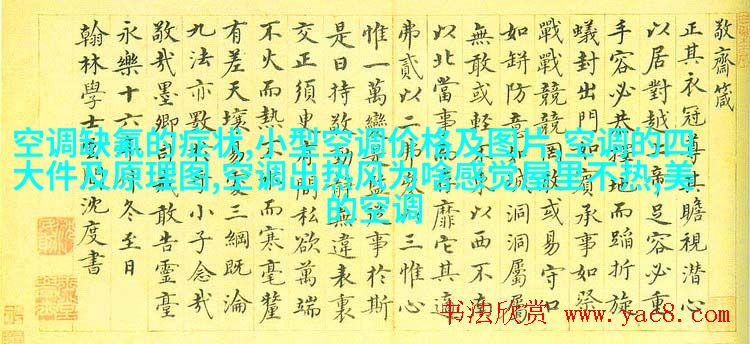 敬齋箴
正其衣冠尊其瞻視潛心
以居對越帝足容必重
手容必共擇地而蹈折旋
蟻封出門如賓承事如祭
戰戰兢兢罔敢或易守口
如缾防意如城洞洞屬屬
無敢或輕不以西不
以北當事靡它其適
弗貳以二弗參三惟心
惟一萬變是事於斯
是曰持敬動無違表裏
交正須臾有間私欲萬端
不火而熱不而寒毫釐
有差天壤易三綱既淪
九法亦斁小子念哉
敬哉墨卿司敢告靈臺
永樂十六年冬至日
翰林學士雲沈度書
空调缺氟的症状,小型空调价格及图片,空调的四
大件及原理图,空调出热风为啥感觉屋里不热,美
的空调
书法欣赏
www.yac8.com